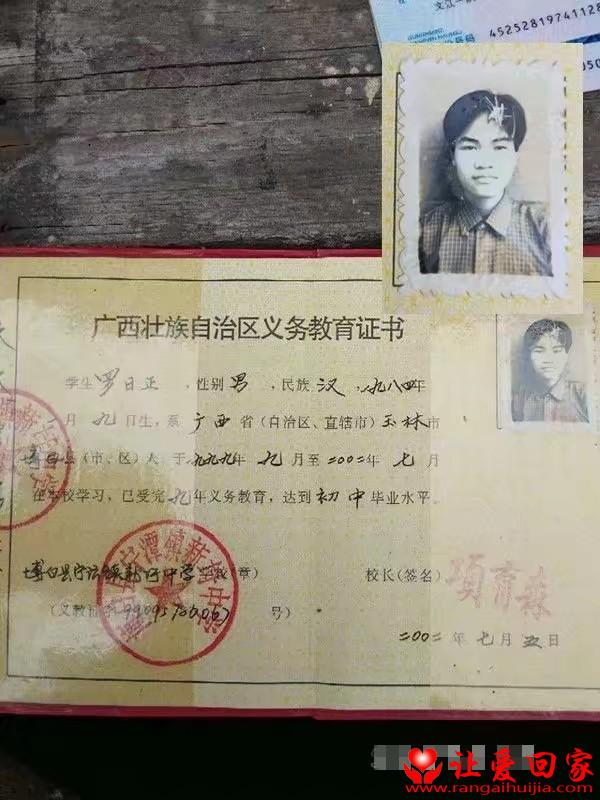 45252819741128
广西壮族自治区义务教育证书
学生 罗日正 ,性别 男 ,民族 汉 ,一九八四年
月 九 日生,系 广西 省(自治区、直辖市)玉林 市
博白县(市、区)人 于一九九九年 九 月至二00二年 七 月
在本校学习,已受完 九 年义务教育,达到 初中 毕业水平。
博白县宁潭镇 中学 (章) 校长(签名) 项育森
(义教证 号)
二00二 年 七 月 五 日
让爱回家
www.rangaihuijia.com